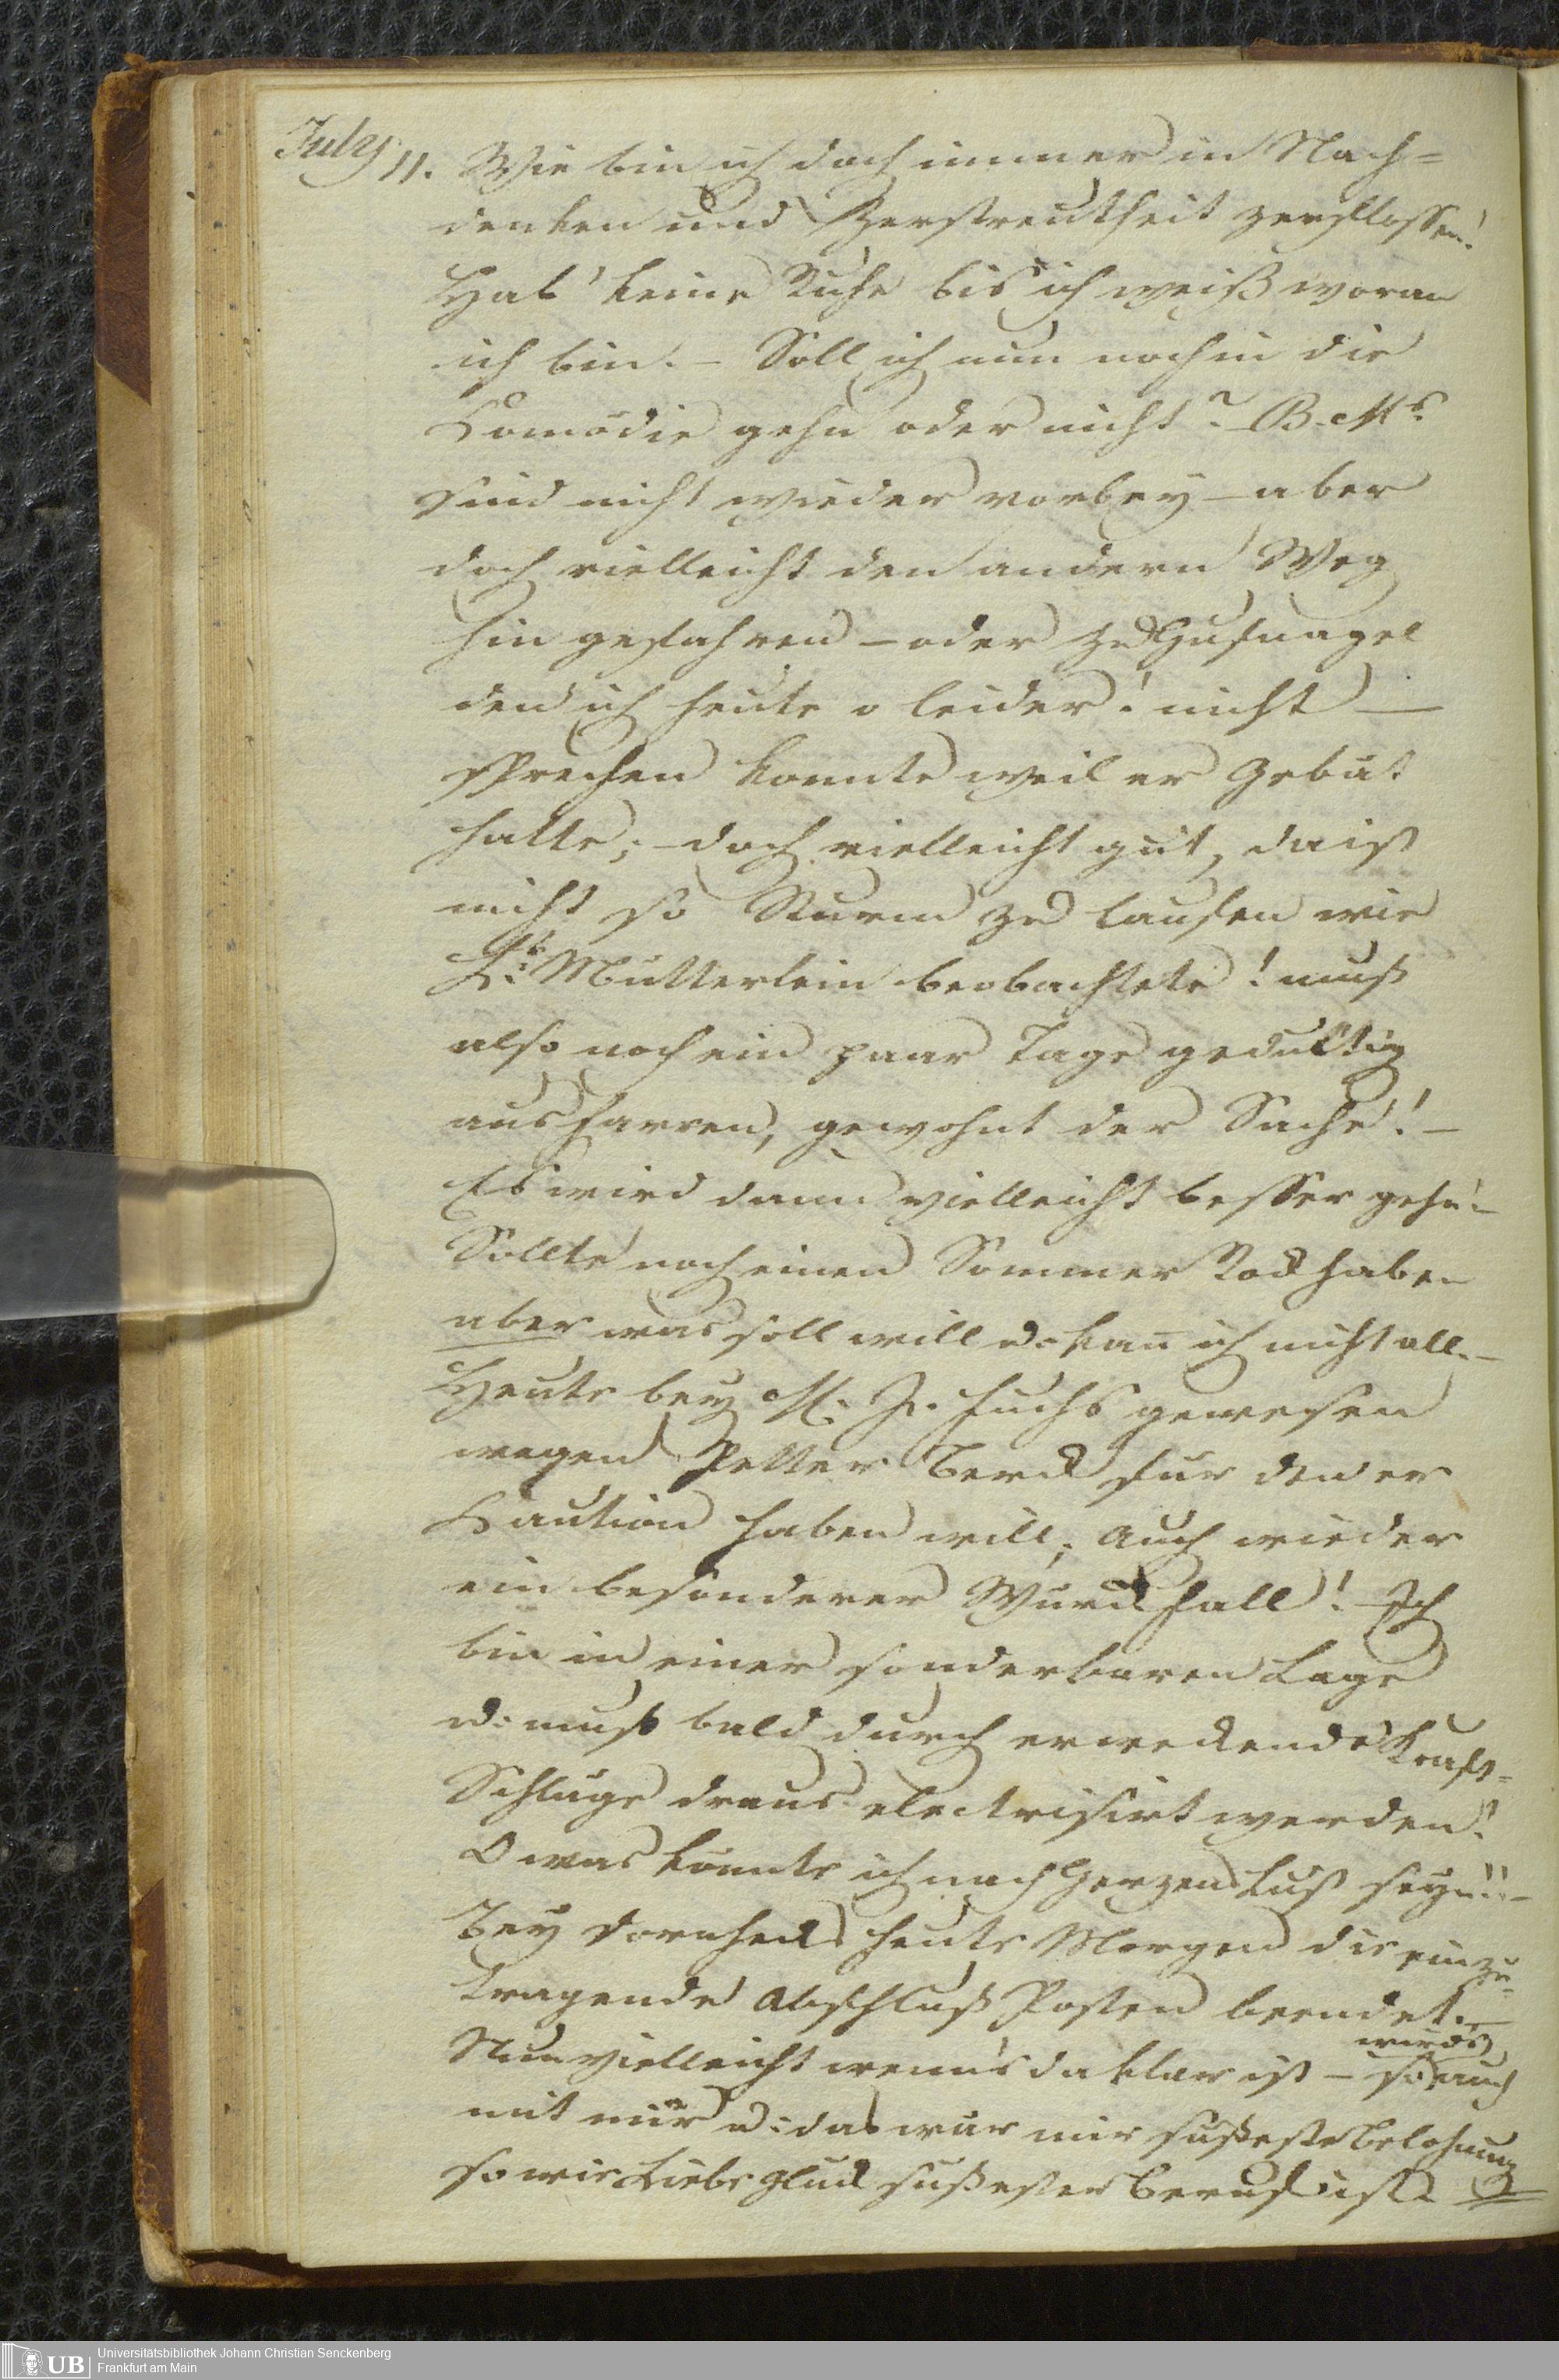 July 11. Wie bin ich doch immer in Nach=
denken und Zerstreutheit zerflossen!
Hab' keine Ruhe bis ich weiß woran
ich bin. – Soll ich nun noch in die
Comödie gehn oder nicht? B. Ms.
sind nicht wieder vorbey – aber
doch vielleicht den andern Weg
hin gefahren – oder zu Hufnagel
den ich heute o leider! nicht –
sprechen konnte weil er Gebut
hatte; – doch vielleicht gut, da ist
nicht so Sturm zu laufen wie
Mütterlein beobachtete! muß
also noch ein paar Tage gedultig
ausharren, gewohnt der Sache! –
Es wird dann vielleicht besser gehn –
Sollte noch einen Sommer Rock haben
aber was soll will u: kan̄ ich nicht all. –
Heute bey M. J. Fuchs gewesen
wegen Petter für den er
Kaution haben will; auch wieder
ein besonderer fall! – Ich
bin in einer sonderbaren Lage
u: muß bald durch erweckende Kraft=
Schläge draus electrisirt werden!
O was könnte ich nach Herzens Lust seyn!! –
Bey heute Morgen die einzu=
tragende Abschluß Posten beendet. –
Nun vielleicht wenn's da klar ist – so wirds auch
mit mir u: das wär mir süßeste Belohnung
so wie Liebe glück süßester Beruf ist.
Universitätsbibliothek Johann Christian Senckenberg
UB Frankfurt am Main